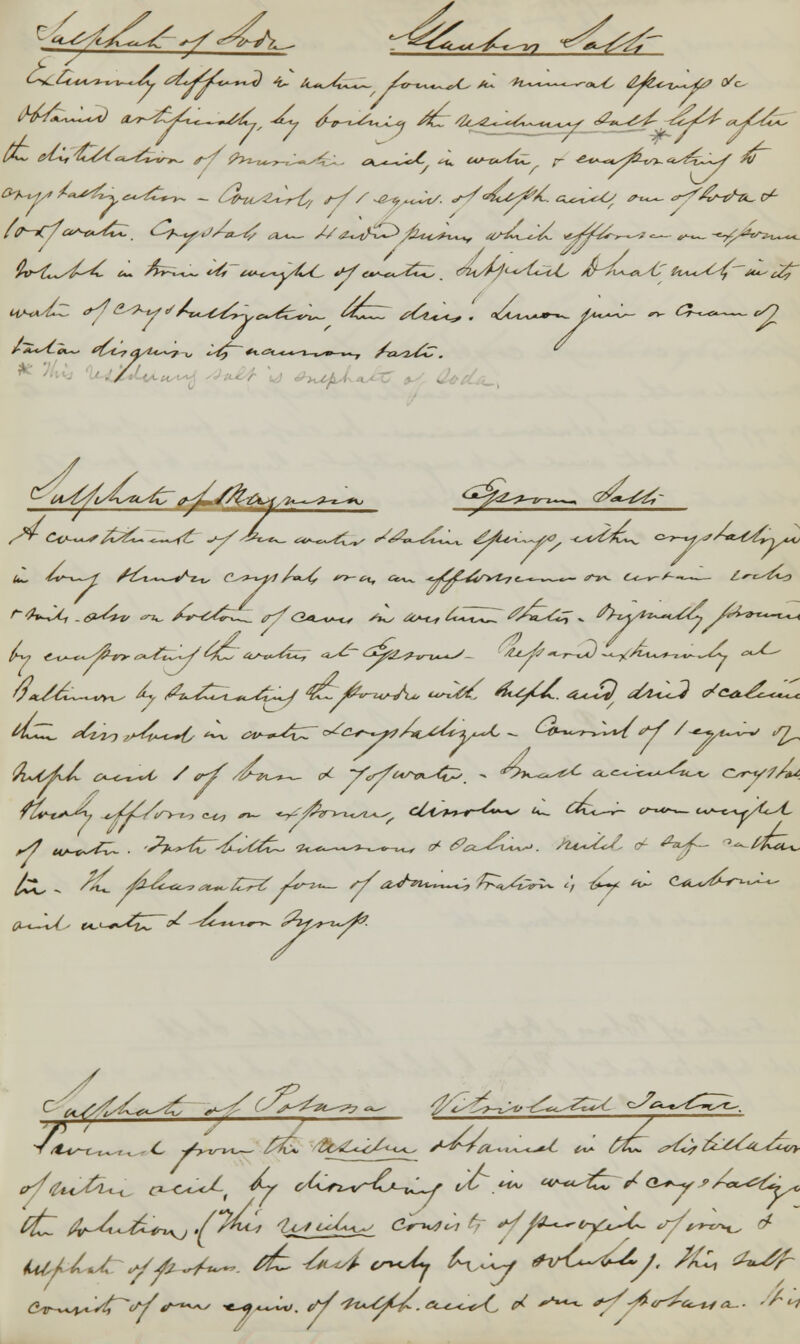 Sulphate of Soda Glauber Salts
Extensively diffused in nature, found in mineral springs &c
Obtained artificially, by boiling the residuary salt* left after
the distillation of muriatic acid, in water, & evaporating to
crystallization – Consists of 1 equiv. of sulph. acid, one of soda &
10 of water. Crystals are 4 sided prisms, which effloresce on exposure
Soluble in three its weight of water. Subjected to heat, melts in its
water of crystallization, then dries. Lemon juice or Cream of
tartar disguise its nauseous taste.
* This residuary salt is sulphate of Soda.
Sulphate of Magnesia Epsom Salts
A constituent of sea water & saline springs, either crystallized
in long slender crystals or as an efflorescence on certain rocks
& soils, also on bottom of caves in western States. Originally procured
by evaporating the waters at Epsom – Prepared extensively at
Baltimore by saturating the powder with sulph. acid, dried & calcined
then dissolved in water & crystallized – Consist of 1 equiv of
sulph acid 1 of base & 7 of water. – Small acicular crystals
slowly effloresces on exposure, dissolves in their own weight
of water. Taste bitter nauseous & saline. Mild & safe cathar
tic – The pleasantest form of administration is by in carbonic
acid water & lemon syrup.
Sulphate of Potassa Vitriolated Tartar.
Procured from the residue obtained in the distillation
of nitric acid, by dissolving it in water & crystallizing
the solution, (This residue consists of peroxide of iron &
sulphate of potass. the last only being soluble). This salt
consists of one equiv. of sulph. acid & one of potassa. It is